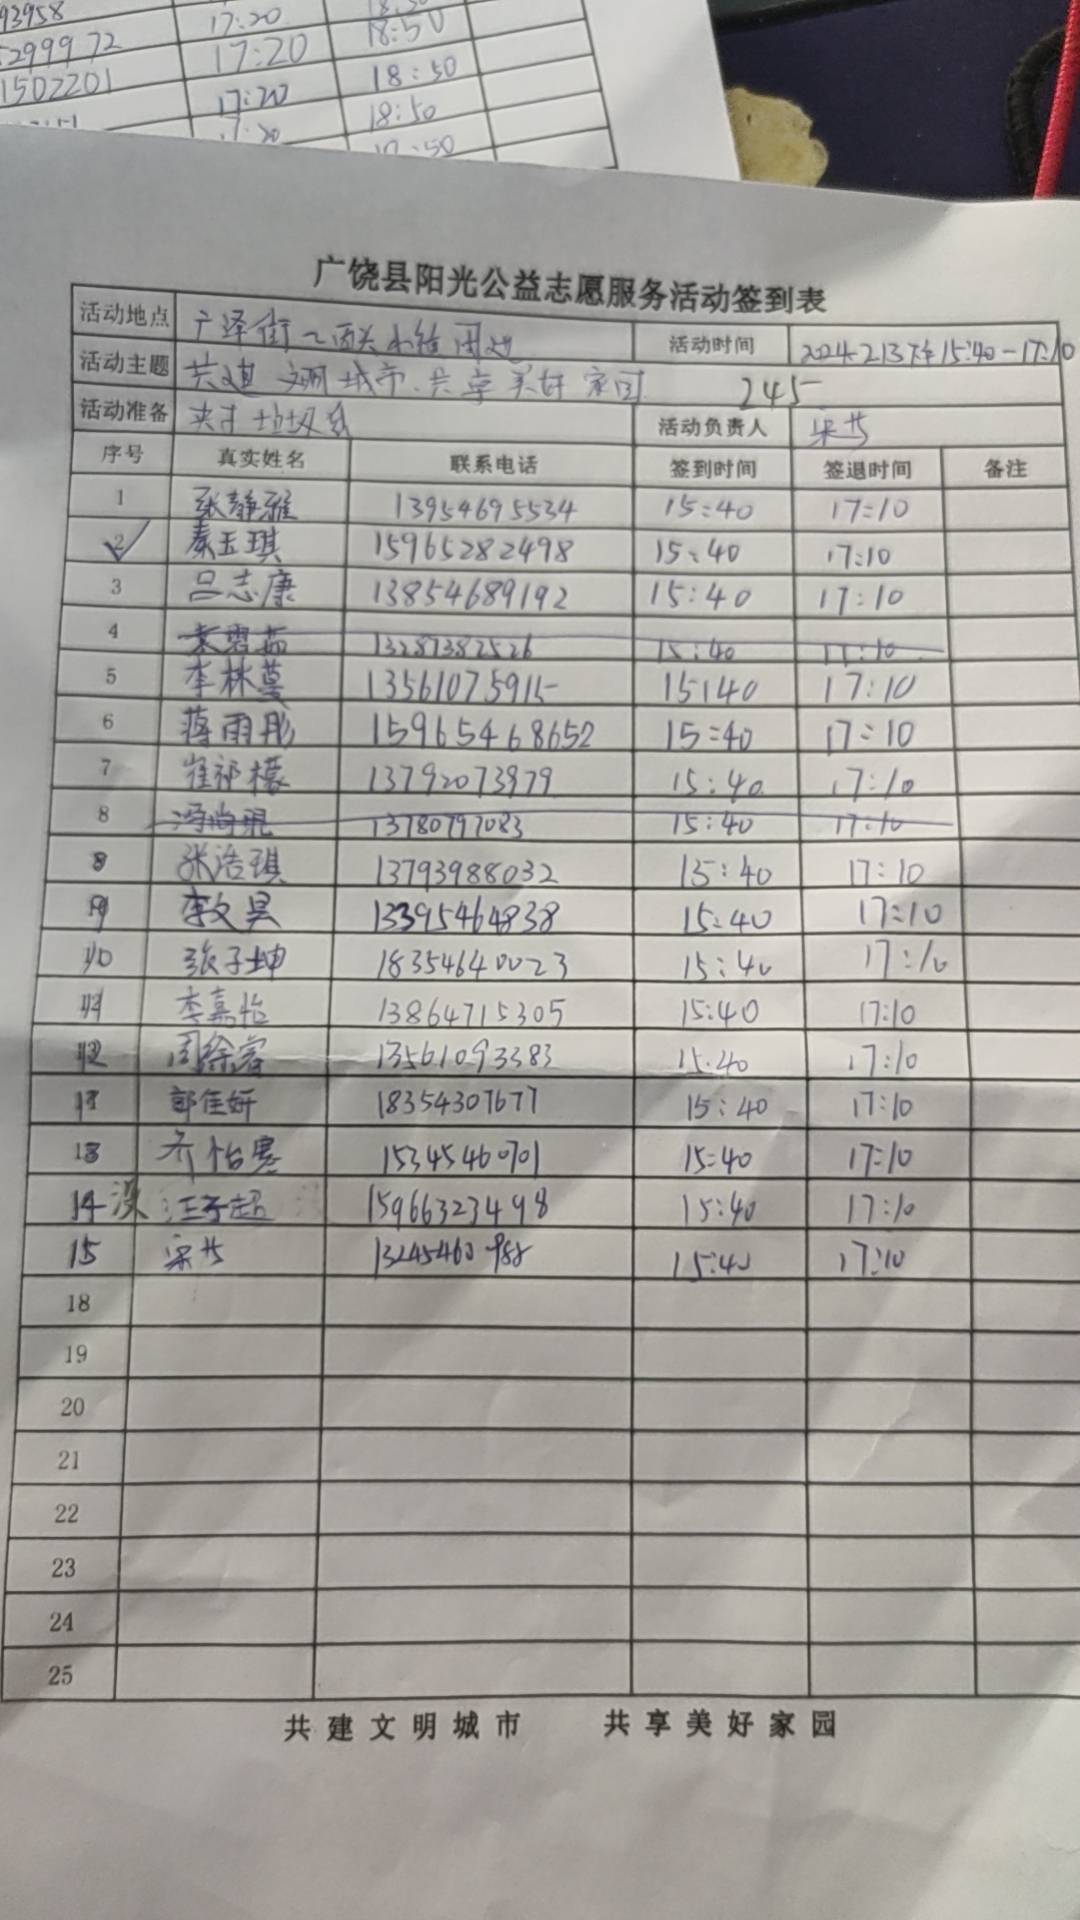 93958 17:20 18:50
299972 17:20 18:50
1502201 17:20 18:50
17:20 18:50
广饶县阳光公益志愿服务活动签到表
活动地点 广泽街 周边 活动时间 2024.2.13下午15:40-17:10
活动主题 共建文明城市、共享美好家园 245
活动准备 夹子 垃圾袋 活动负责人 梁芳
序号 真实姓名 联系电话 签到时间 签退时间 备注
1 张静雅 13954695534 15:40 17:10
2 秦玉琪 15965282498 15:40 17:10
3 吕志康 13854689192 15:40 17:10
4 13287382526 15:40 17:10
5 李林蔓 13561075915 15:40 17:10
6 蒋雨彤 15965468652 15:40 17:10
7 崔祁檬 13792073979 15:40 17:10
8 13780797083 15:40 17:10
8 张浩琪 13793988032 15:40 17:10
9 李文昊 13395464838 15:40 17:10
10 张子坤 18354640023 15:40 17:10
11 李嘉怡 13864715305 15:40 17:10
12 周徐睿 13561093383 15:40 17:10
郭佳妍 18354307677 15:40 17:10
13 齐怡 15345460701 15:40 17:10
14 没 汪子超 15966323498 15:40 17:10
15 梁芳 15:40 17:10
18
19
20
21
22
23
24
25
共建文明城市 共享美好家园